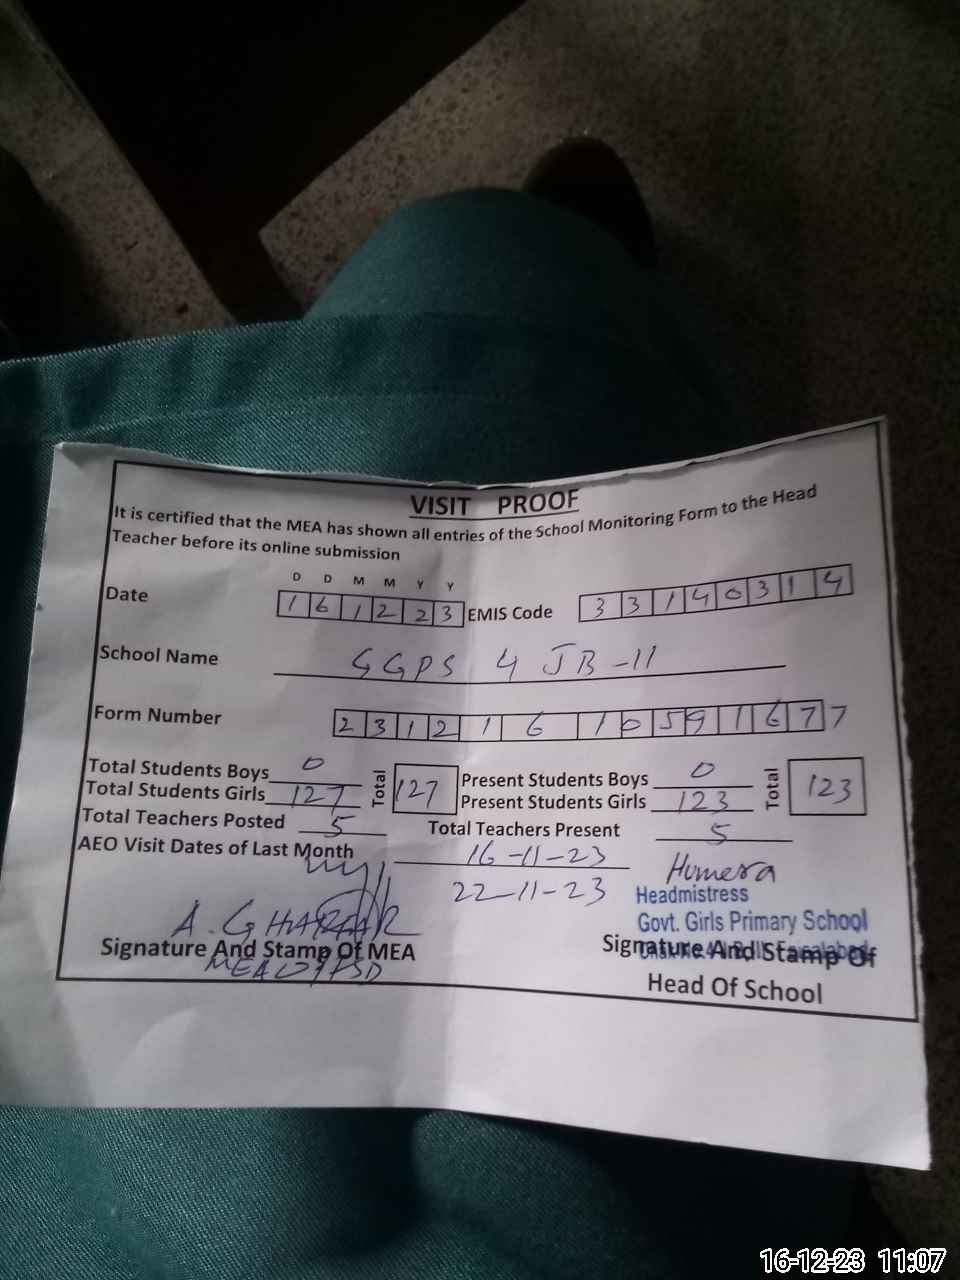 VISIT PROOF
It is certified that the MEA has shown all entries of the School Monitoring Form to the Head
Teacher before its online submission
D D M M Y Y
Date 1 6 1 2 2 3 EMIS Code 3 3 1 4 0 3 1 4
School Name GGPS 4 JB-11
Form Number 2 3 1 2 1 6 1 0 5 9 1 6 7 7
Total Students Boys 0 Total 127 Present Students Boys 0 Total 123
Total Students Girls 127 Present Students Girls 123
Total Teachers Posted 5 Total Teachers Present 5
AEO Visit Dates of Last Month 16-11-23
22-11-23 Humera
Headmistress
A. GHAFFAR Govt. Girls Primary School
Signature And Stamp Of MEA Signature And Stamp Of
MEA FSD Head Of School
16-12-23 11:07